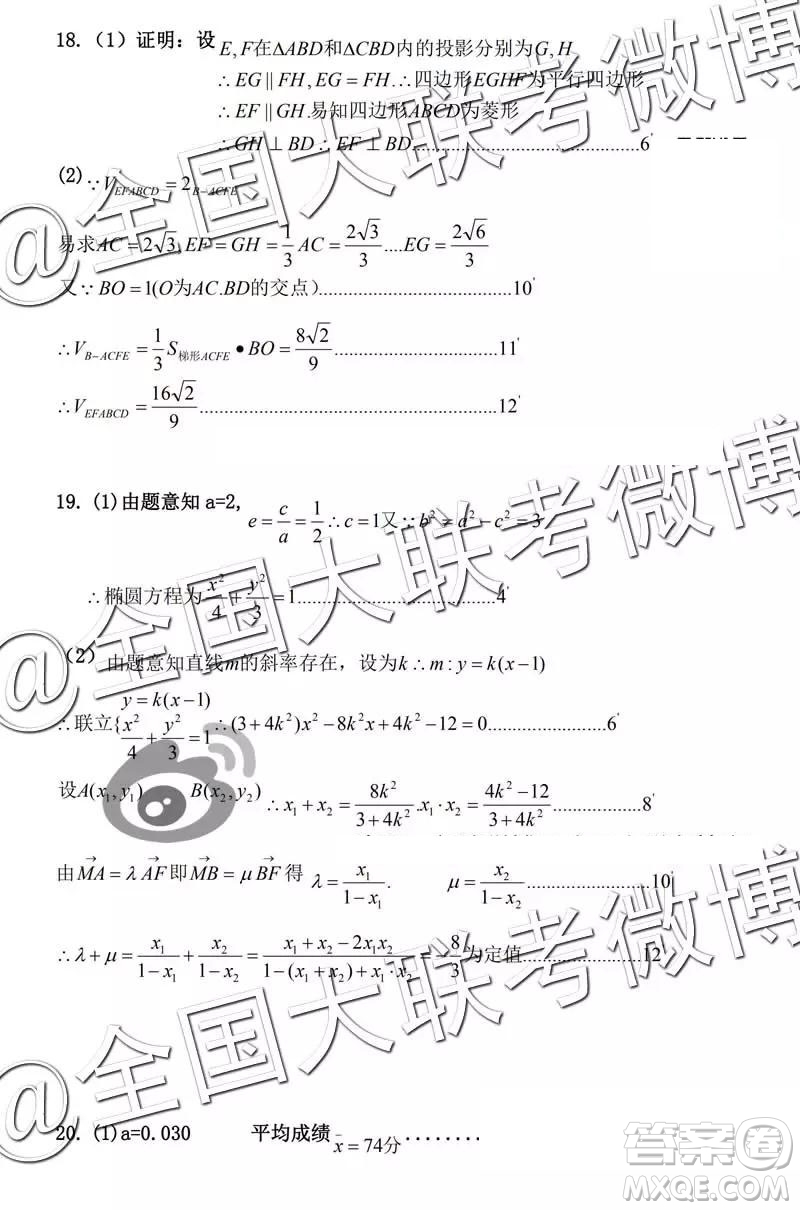 18.（1）证明：设 E,F在ΔABD和ΔCBD内的投影分别为G,H
∴EG∥FH,EG=FH.∴四边形EGHF为平行四边形
∴EF∥GH.易知四边形ABCD为菱形
∴GH⊥BD∴EF⊥BD......................................6'
(2) ∵V_{EFABCD}=2_{B-ACFE}
易求AC=2√3,EF=GH=\frac{1}{3}AC=\frac{2√3}{3}....EG=\frac{2√6}{3}
又∵BO=1(O为AC.BD的交点)................................10'
∴V_{B-ACFE}=\frac{1}{3}S_{梯形ACFE}•BO=\frac{8√2}{9}...........................11'
∴V_{EFABCD}=\frac{16√2}{9}.................................................12'
19. (1)由题意知 a=2, e=\frac{c}{a}=\frac{1}{2}∴c=1又∵b²=a²-c²=3
∴椭圆方程为\frac{x²}{4}+\frac{y²}{3}=1.................................4'
（2）由题意知直线m的斜率存在，设为k∴m:y=k(x-1)
y=k(x-1)
∴联立{\frac{x²}{4}+\frac{y²}{3}=1 ∴(3+4k²)x²-8k²x+4k²-12=0....................6'
设A(x₁,y₁) B(x₂,y₂) ∴x₁+x₂=\frac{8k²}{3+4k²}.x₁·x₂=\frac{4k²-12}{3+4k²}...............8'
由\vec{MA}=λ\vec{AF}即\vec{MB}=μ\vec{BF}得 λ=\frac{x₁}{1-x₁}. μ=\frac{x₂}{1-x₂}.....................10'
∴λ+μ=\frac{x₁}{1-x₁}+\frac{x₂}{1-x₂}=\frac{x₁+x₂-2x₁x₂}{1-(x₁+x₂)+x₁·x₂}=-\frac{8}{3}为定值....................12'
20. (1)a=0.030 平均成绩 \bar{x}=74分........
@全国大联考微博
@全国大联考微博
@全国大联考微博
答案圈
MXQE.COM